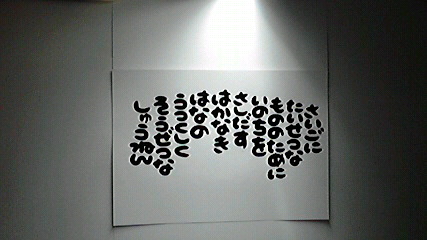 さいごに
たいせつな
もののために
いのちを
さしだす
はかなき
はなの
うつくしく
そうぜつな
しゅうねん